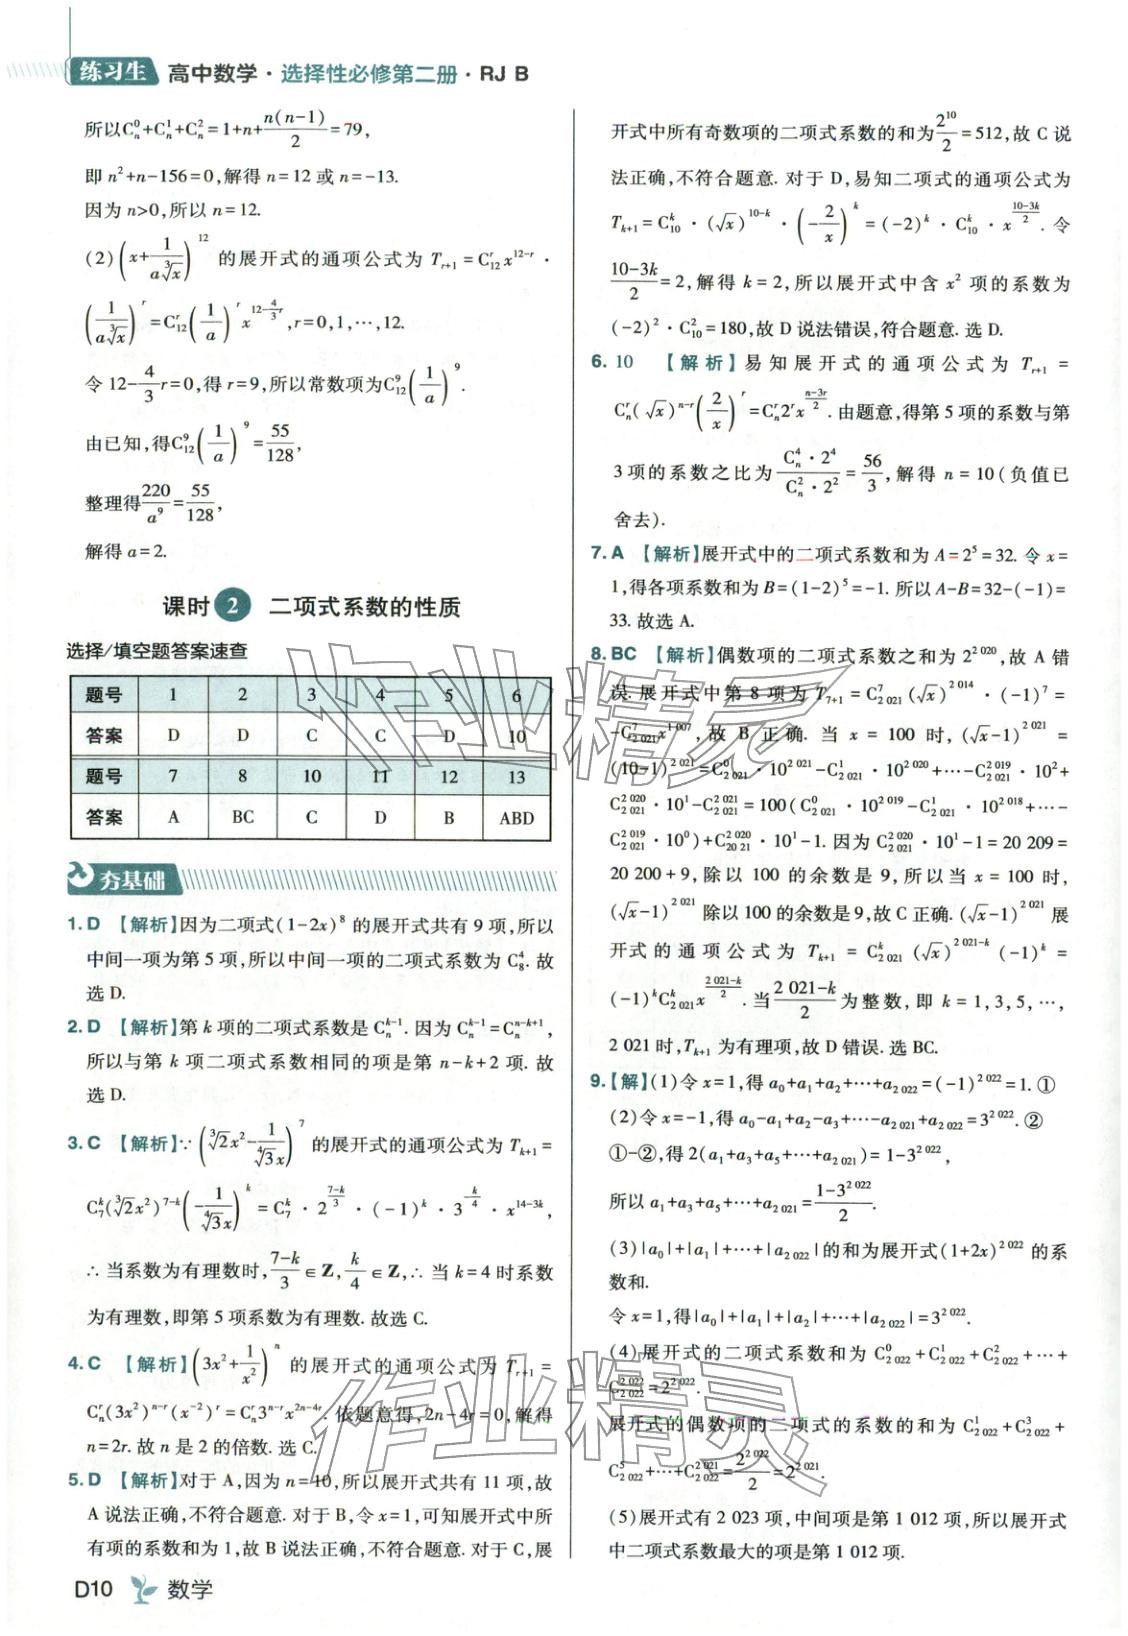 练习生 高中数学·选择性必修第二册·RJ B
所以C_n^0+C_n^1+C_n^2=1+n+\frac{n(n-1)}{2}=79,
即 n^2+n-156=0,解得 n=12 或 n=-13.
因为 n>0,所以 n=12.
(2)(x+\frac{1}{a\sqrt[3]{x}})^{12} 的展开式的通项公式为 T_{r+1}=C_{12}^r x^{12-r}·
(\frac{1}{a\sqrt[3]{x}})^r=C_{12}^r(\frac{1}{a})^r x^{12-\frac{4}{3}r},r=0,1,…,12.
令 12-\frac{4}{3}r=0,得 r=9,所以常数项为C_{12}^9(\frac{1}{a})^9.
由已知,得C_{12}^9(\frac{1}{a})^9=\frac{55}{128},
整理得\frac{220}{a^9}=\frac{55}{128},
解得 a=2.
课时 2 二项式系数的性质
选择/填空题答案速查
题号 1 2 3 4 5 6
答案 D D C C D 10
题号 7 8 10 11 12 13
答案 A BC C D B ABD
夯基础
1. D 【解析】因为二项式(1-2x)^8 的展开式共有 9 项,所以
中间一项为第 5 项,所以中间一项的二项式系数为 C_8^4. 故
选 D.
2. D 【解析】第 k 项的二项式系数是 C_n^{k-1}. 因为 C_n^{k-1}=C_n^{n-k+1},
所以与第 k 项二项式系数相同的项是第 n-k+2 项. 故
选 D.
3. C 【解析】∵(\sqrt[3]{2}x^2-\frac{1}{\sqrt[4]{3}x})^7 的展开式的通项公式为 T_{k+1}=
C_7^k(\sqrt[3]{2}x^2)^{7-k}(-\frac{1}{\sqrt[4]{3}x})^k=C_7^k·2^{\frac{7-k}{3}}·(-1)^k·3^{-\frac{k}{4}}·x^{14-3k},
∴当系数为有理数时,\frac{7-k}{3}∈Z,\frac{k}{4}∈Z,∴当 k=4 时系数
为有理数,即第 5 项系数为有理数. 故选 C.
4. C 【解析】(3x^2+\frac{1}{x^2})^n 的展开式的通项公式为 T_{r+1}=
C_n^r(3x^2)^{n-r}(x^{-2})^r=C_n^r3^{n-r}x^{2n-4r}. 依题意得,2n-4r=0,解得
n=2r. 故 n 是 2 的倍数. 选 C.
5. D 【解析】对于 A,因为 n=10,所以展开式共有 11 项,故
A 说法正确,不符合题意. 对于 B,令 x=1,可知展开式中所
有项的系数和为 1,故 B 说法正确,不符合题意. 对于 C,展
开式中所有奇数项的二项式系数的和为\frac{2^{10}}{2}=512,故 C 说
法正确,不符合题意. 对于 D,易知二项式的通项公式为
T_{k+1}=C_{10}^k·(\sqrt{x})^{10-k}·(-\frac{2}{x})^k=(-2)^k·C_{10}^k·x^{\frac{10-3k}{2}}. 令
\frac{10-3k}{2}=2,解得 k=2,所以展开式中含 x^2 项的系数为
(-2)^2·C_{10}^2=180,故 D 说法错误,符合题意. 选 D.
6. 10 【解析】易知展开式的通项公式为 T_{r+1}=
C_n^r(\sqrt{x})^{n-r}(\frac{2}{x})^r=C_n^r2^r x^{\frac{n-3r}{2}}. 由题意,得第 5 项的系数与第
3 项的系数之比为\frac{C_n^4·2^4}{C_n^2·2^2}=\frac{56}{3},解得 n=10(负值已
舍去).
7. A 【解析】展开式中的二项式系数和为 A=2^5=32. 令 x=
1,得各项系数和为 B=(1-2)^5=-1. 所以 A-B=32-(-1)=
33. 故选 A.
8. BC 【解析】偶数项的二项式系数之和为 2^{2 020},故 A 错
误. 展开式中第 8 项为 T_{7+1}=C_{2 021}^7(\sqrt{x})^{2 014}·(-1)^7=
-C_{2 021}^7x^{1 007},故 B 正确. 当 x=100 时,(\sqrt{x}-1)^{2 021}=
(10-1)^{2 021}=C_{2 021}^0·10^{2 021}-C_{2 021}^1·10^{2 020}+…-C_{2 021}^{2 019}·10^2+
C_{2 021}^{2 020}·10^1-C_{2 021}^{2 021}=100(C_{2 021}^0·10^{2 019}-C_{2 021}^1·10^{2 018}+…-
C_{2 021}^{2 019}·10^0)+C_{20 21}^{2 020}·10^1-1. 因为 C_{2 021}^{2 020}·10^1-1=20 209=
20 200+9,除以 100 的余数是 9,所以当 x=100 时,
(\sqrt{x}-1)^{2 021}除以 100 的余数是 9,故 C 正确. (\sqrt{x}-1)^{2 021}展
开式的通项公式为 T_{k+1}=C_{2 021}^k(\sqrt{x})^{2 021-k}(-1)^k=
(-1)^kC_{2 021}^k x^{\frac{2 021-k}{2}}. 当\frac{2 021-k}{2}为整数,即 k=1,3,5,…,
2 021时,T_{k+1}为有理项,故 D 错误. 选 BC.
9.【解】(1)令 x=1,得 a_0+a_1+a_2+…+a_{2 022}=(-1)^{2 022}=1. ①
(2)令 x=-1,得 a_0-a_1+a_2-a_3+…-a_{2 021}+a_{2 022}=3^{2 022}. ②
①-②,得 2(a_1+a_3+a_5+…+a_{2 021})=1-3^{2 022},
所以 a_1+a_3+a_5+…+a_{2 021}=\frac{1-3^{2 022}}{2}.
(3)|a_0|+|a_1|+…+|a_{2 022}|的和为展开式(1+2x)^{2 022} 的系
数和.
令 x=1,得|a_0|+|a_1|+|a_2|+…+|a_{2 022}|=3^{2 022}.
(4)展开式的二项式系数和为 C_{2 022}^0+C_{2 022}^1+C_{2 022}^2+…+
C_{2 022}^{2 022}=2^{2 022}.
展开式的偶数项的二项式的系数的和为 C_{2 022}^1+C_{2 022}^3+
C_{2 022}^5+…+C_{2 022}^{2 022}=\frac{2^{2 022}}{2}=2^{2 021}.
(5)展开式有 2 023 项,中间项是第 1 012 项,所以展开式
中二项式系数最大的项是第 1 012 项.
D10 数学
作业精灵
作业精灵